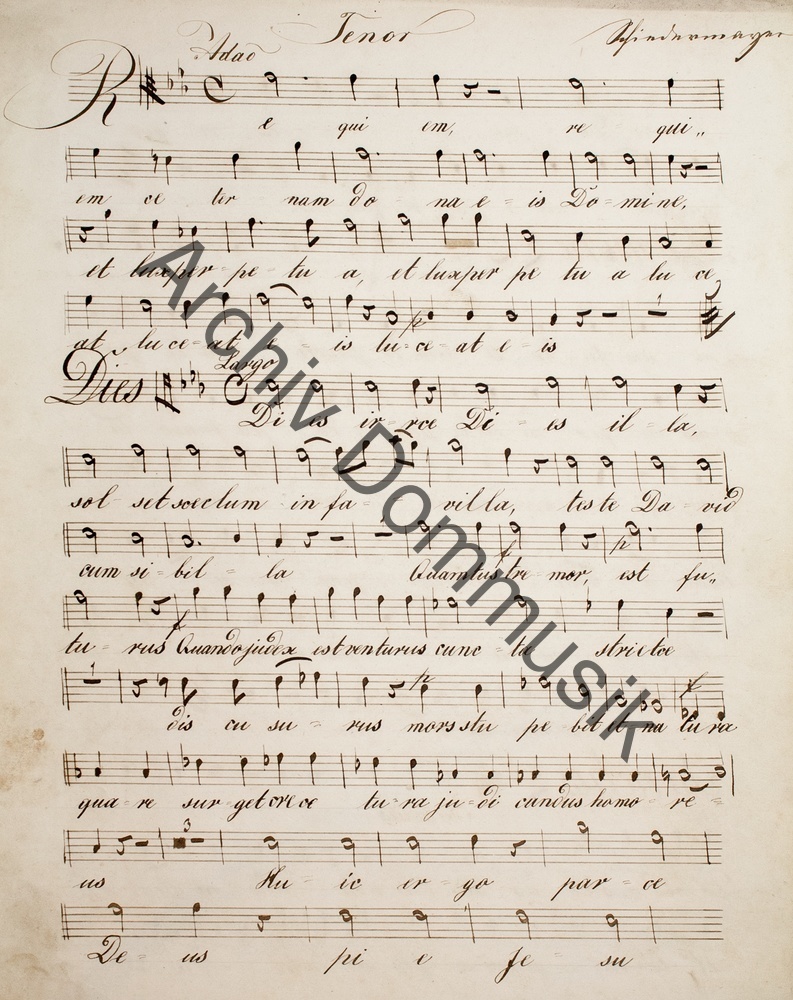 Tenor
Schiedermayer
Adao
R e qui em, re qui,,
em ce ter nam do - na e = is Do = mi ne,
et lux per = pe = tu a, et lux per pe tu a lu ce
at lu ce = at e = is lu = ce = at e = is
Largo
Dies
Di es ir = rce Di = es il = la,
sol = set soeclum in fa = vil la, teste Da = vid
cum si = bil = la Quantus tre mor, est fu,,
tu = rus Quando judex est venturus cunc = ta stricte
dis cu su = rus mors stu pe bit et na tu ra
qua = re sur = get cre ce tu = ra ju = di candus homo = re =
us 3 Hu = ic er = go par = ce
De = us pi e Je = su
Archiv Dommusik